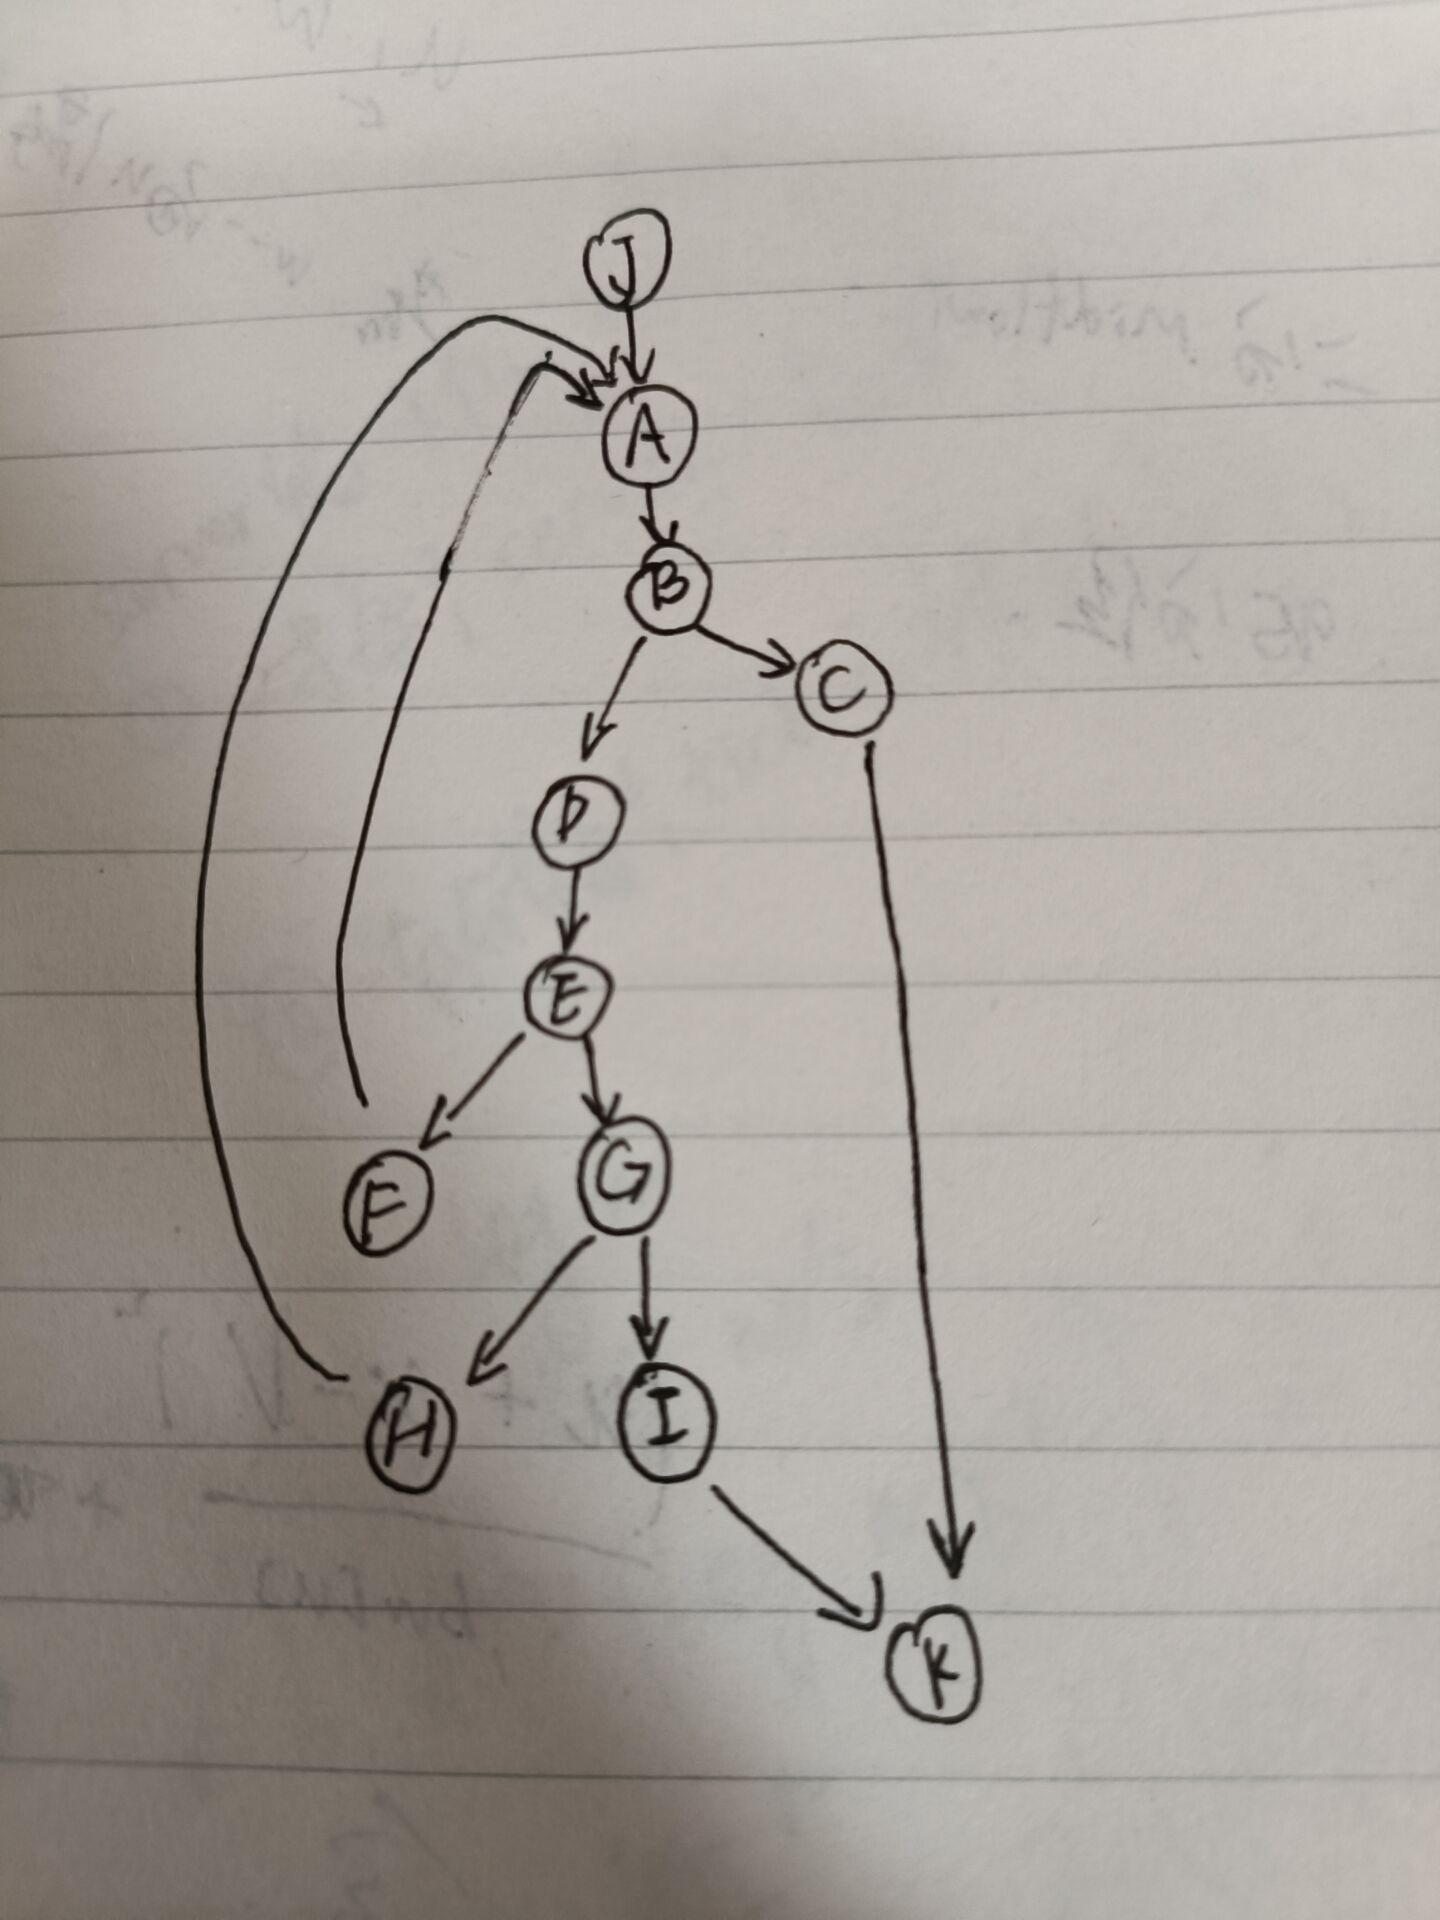 J
A
B
C
D
E
F
G
H
I
K